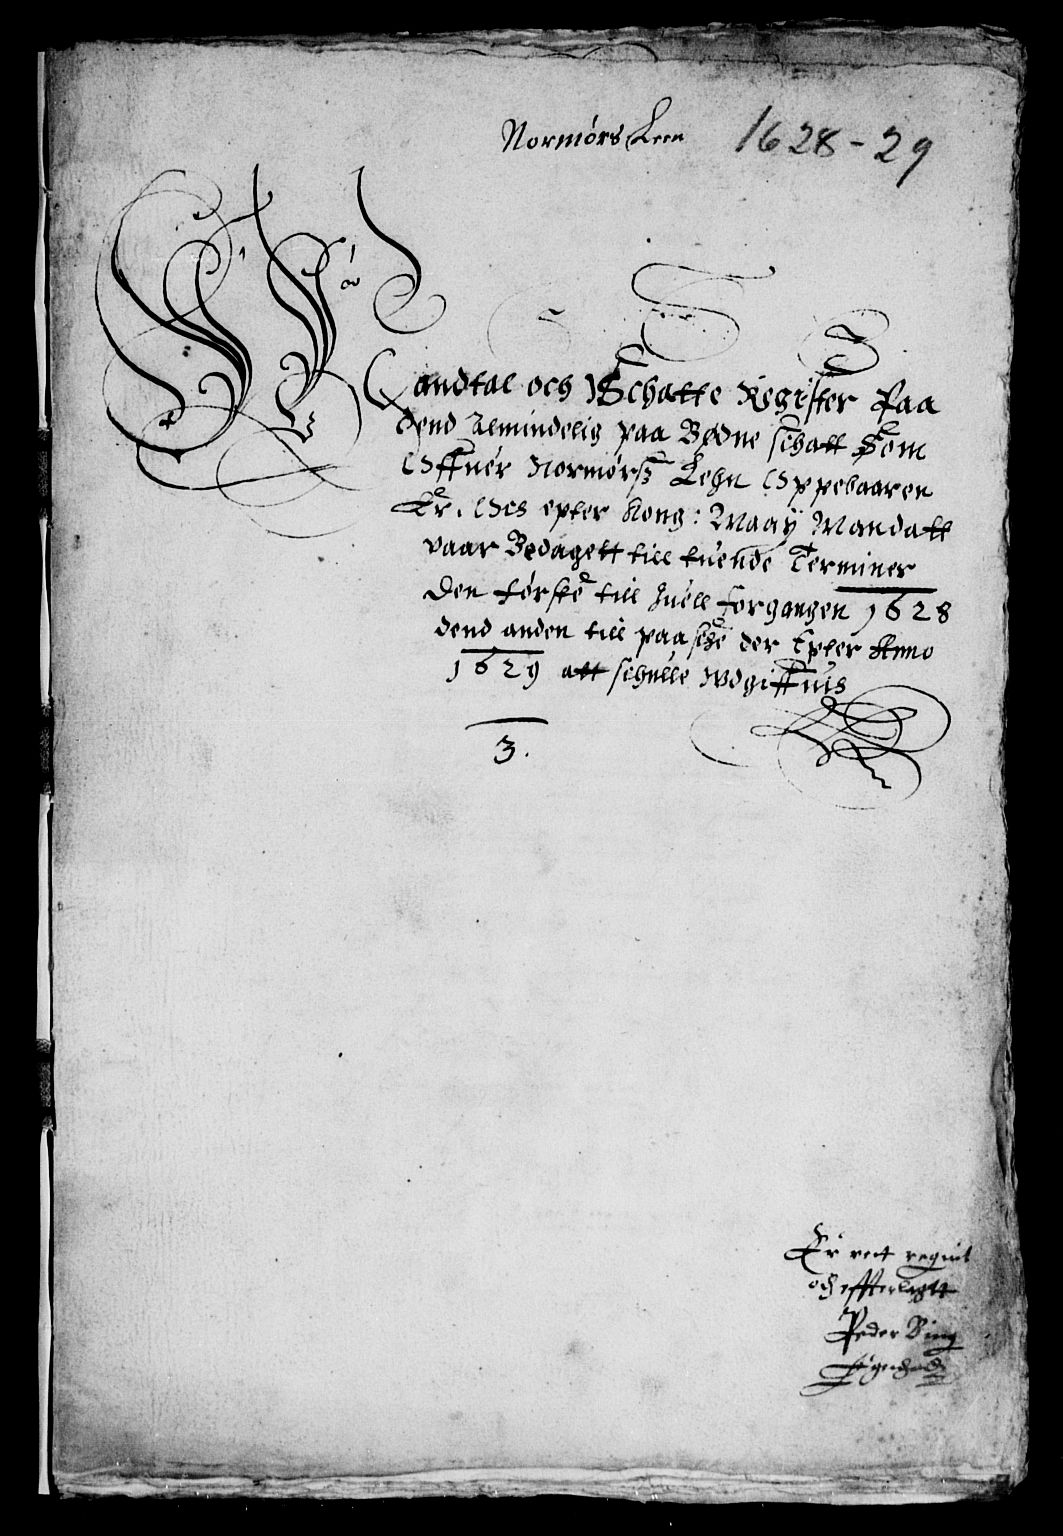 Normørs Leen 1628-29
Mandtal och Schatte Register Paa
dend Almindelig paa Bødne schatt Som
Offuer Normørß Lehn Oppebaaren
Er, Och epter Kong: Maay Mandatt
vaar Bedagett till tuende Terminer
Den første till Juell forgangen 1628
dend anden till paasche der Epter Anno
1629 att schulle Wdgiffuis
3.
Er rett regnit
och effterlagtt
Peder Bing